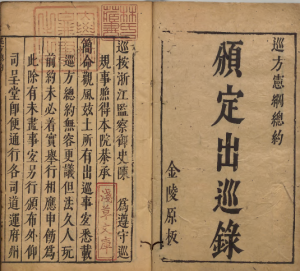 巡方憲綱總約
頒定出巡錄
金陵原板
巡按浙江監察御史陳 為遵守巡
規事照得本院恭承
簡命觀風玆土所有出巡事宜悉載
巡方總約無容更議但法久人玩
前約未必着實舉行相應申飭爲
此除有未盡事宜另行頒布外仰
司呈堂即便通行各司道運府州
淺草文庫